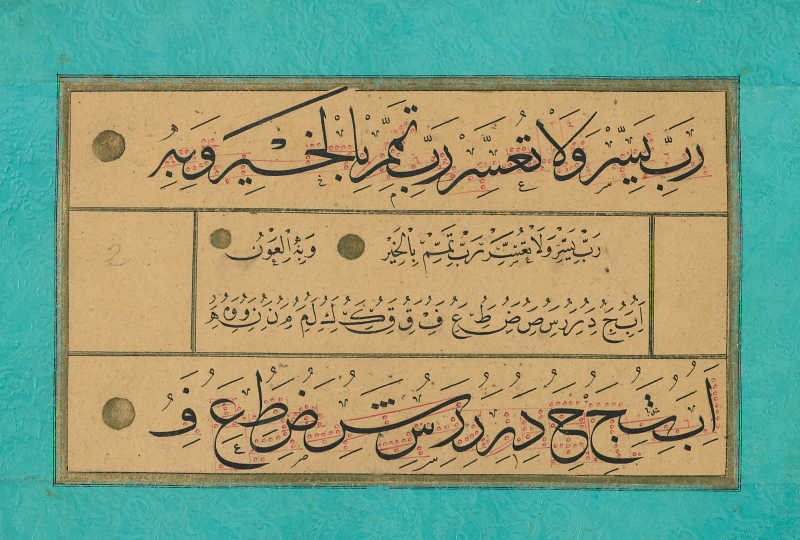 رَبِّ يَسِّرْ وَلَا تُعَسِّرْ رَبِّ تَمِّمْ بِالْخَيْرِ وَبِهِ
رَبِّ يَسِّرْ وَلَا تُعَسِّرْ رَبِّ تَمِّمْ بِالْخَيْرِ وَبِهِ الْعَوْنُ
2
ا ب ج د ر ر س ص ض ط ع ف ق ق ك ك ل م م ن ن و و ه
ا ب ت ج ح د ر ر س ش ض ط ع ف